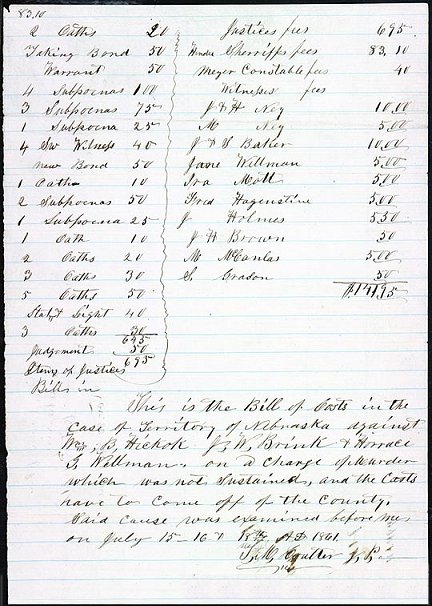 83.10
2 Oaths 20
Taking Bond 50
Warrant 50
4 Subpoenas 100
3 Subpoenas 75
1 Subpoena 25
4 Sw Witness 40
New Bond 50
1 Oaths 10
2 Subpoenas 50
1 Subpoena 25
1 Oath 10
2 Oaths 20
3 Oaths 30
5 Oaths 50
40
3 Oaths 30
645
Judgement 50
695
Items of Justices
Bills in
Justices fees 695
Sherriffs fees 83,10
Meyer Constable fees 40
Witnesses fees
J & H Ney 10,00
M Ney 5,00
J & S Baker 10,00
Jane Wellman 5,00
Ira Mott 5,00
Fred Hagenstine 5,00
J Holmes 5,50
J H Brown 50
M McCanlas 5,00
S. Grason 50
This is the Bill of Costs in the
case of Territory of Nebraska against
Wm, B Hickok J, W, Brink & Horrace
G, Wellman, on a Charge of Murder
which was not Sustained, and the Costs
have to Come off of the County.
Said cause was examined before me
on July 15 - 16 & 18th, AD 1861.
T, M, Coulter J, P,